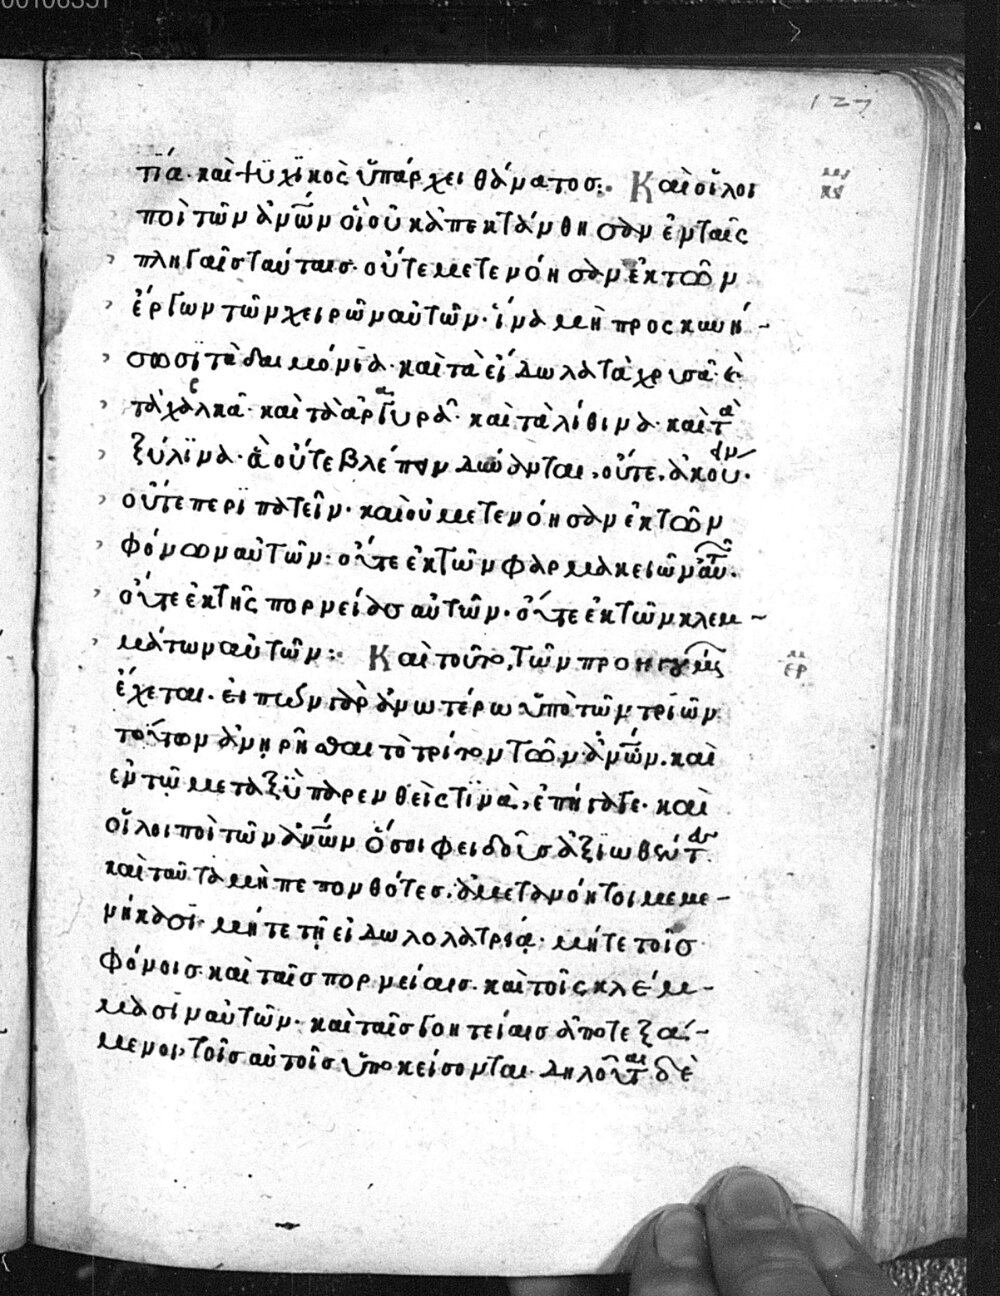 127
τία· καὶ ψυχϊκὸς ὕπάρχει θάνατος:· Καὶ οἵ λοι
ποὶ τῶν ἀνῶν οἳ οὐκ ἀπεκτάνθησαν ἐν ταῖς
πληγαῖς ταύταις· οὔτε μετενόησαν ἐκ τῶν
ἔργων τῶν χειρῶν αὐτῶν· ἵνα μὴ προσκυνή-
σωσϊ τὰ δαιμόνϊα· καὶ τὰ εἴδωλα τὰ χρυσᾶ· ὲ
τὰ χαλκᾶ· καὶ τὰ ἀργυρᾶ· καὶ τὰ λίθινα· καὶ τὰ
ξύλϊνα· ἃ οὔτε βλέπειν δύνανται, οὔτε ἀκού·
οὔτε περϊπατεῖν· καὶ οὐ μετενόησαν ἐκ τῶν
φόνων αὐτῶν· οὔτε ἐκ τῶν φαρμακειῶν αὐτ·
οὔτε ἐκ τῆς πορνείας αὐτῶν· οὔτε ἐκ τῶν κλεμ-
μάτων αὐτῶν:· Καὶ τοῦτο, τῶν προηγ
ἔχεται· εἰπὼν γὰρ ἀνωτέρω ὑπὸ τῶν τριῶν
τούτων ἀνῃρῆσθαι τὸ τρίτον τῶν ἀνῶν· καὶ
ἐν τῷ μεταξὺ παρενθείς τϊνὰ, ἐπήγαγε· καὶ
οἵ λοιποὶ τῶν ἀνῶν ὅσοι φειδοῦς ἀξϊωθέντ
καὶ ταῦτα μὴ πεπονθότες· ἀμετανόητοι μεμε-
νήκασϊ· μήτε τῇ εἰδωλολατρίᾳ· μήτε τοῖς
φόνοις καὶ ταῖς πορνείαις· καὶ τοῖς κλέμ-
μασϊν αὐτῶν· καὶ ταῖς γοητείαις ἀποταξά-
μενοι, τοῖς αὐτοῖς ὑποκείσονται· δηλοῦται δὲ